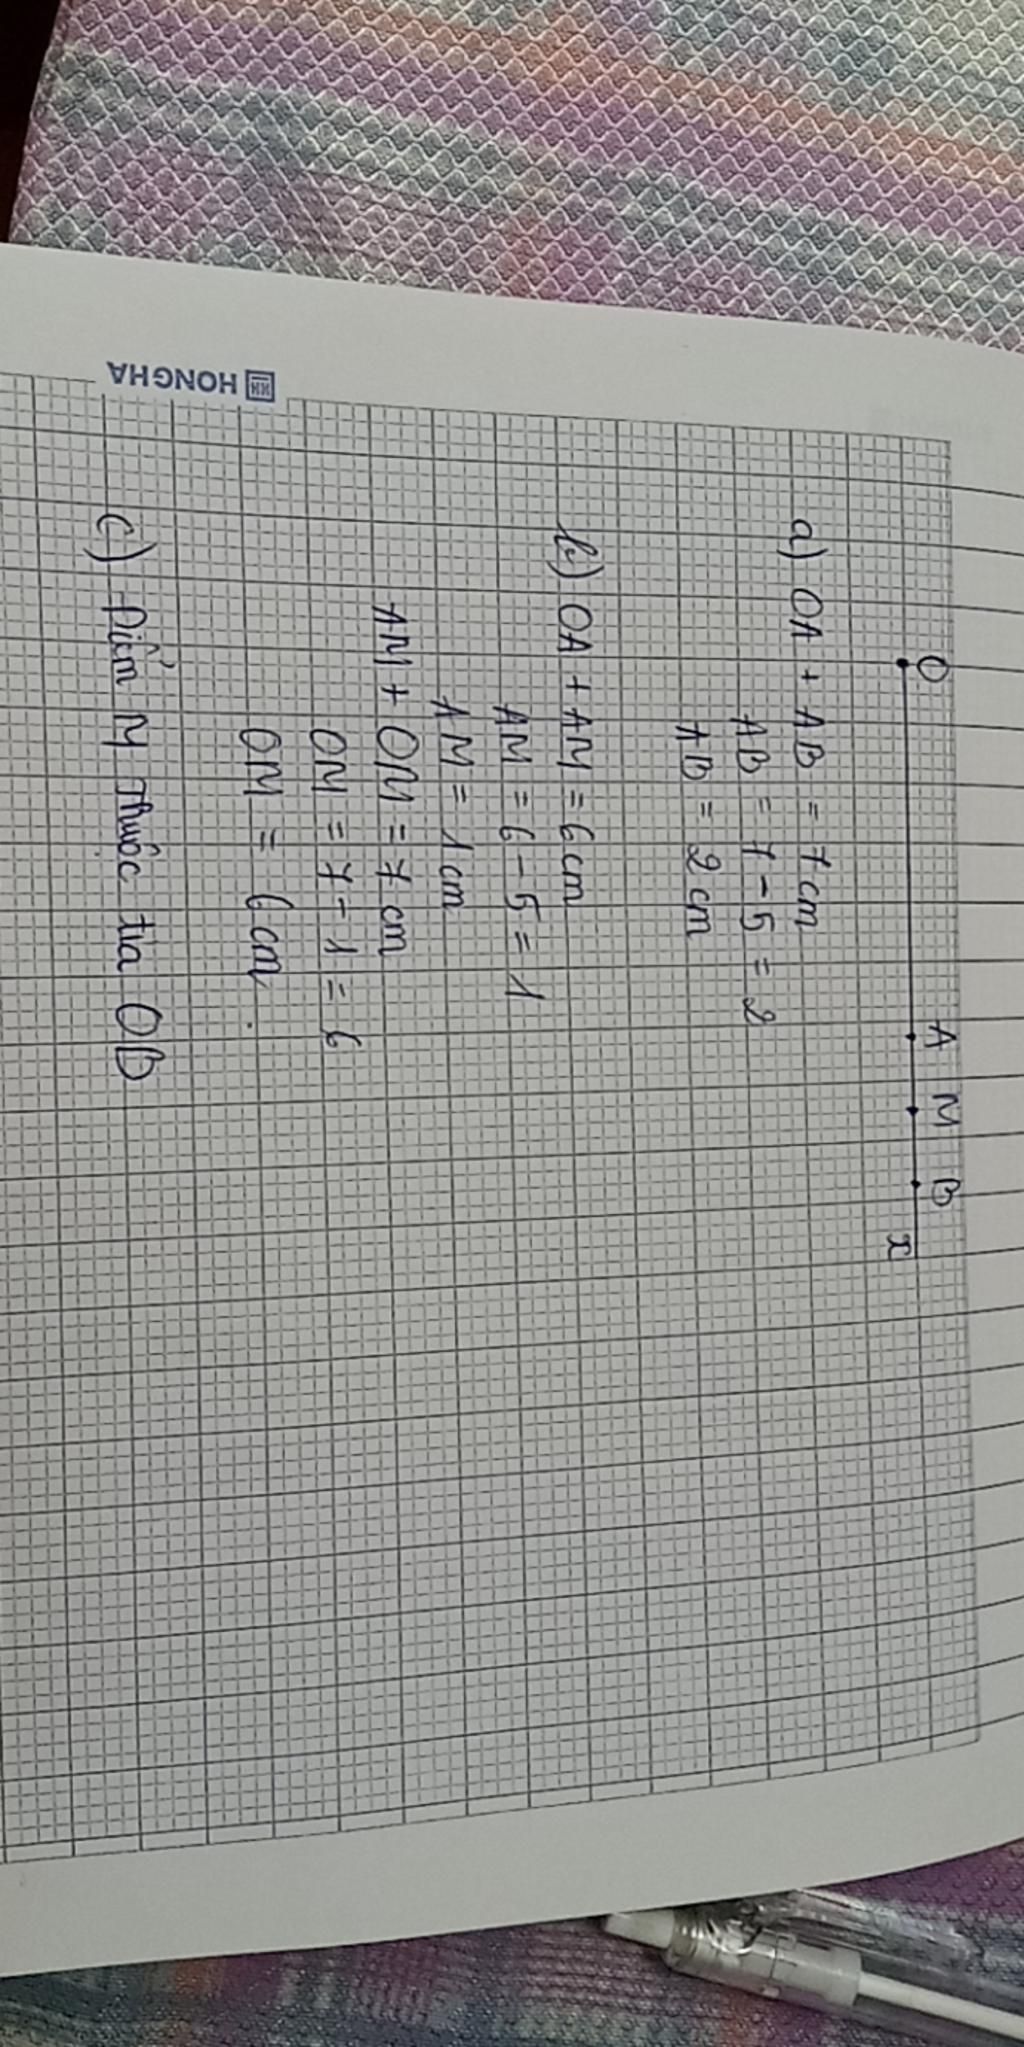 HONGHA
O A M B
x
a) OA + AB = 7cm
AB = 7 - 5 = 2
AB = 2cm
b) OA + AM = 6cm
AM = 6 - 5 = 1
AM = 1cm
AM + OM = 7cm
OM = 7 - 1 = 6
OM = 6cm.
c) Điểm M thuộc tia OB